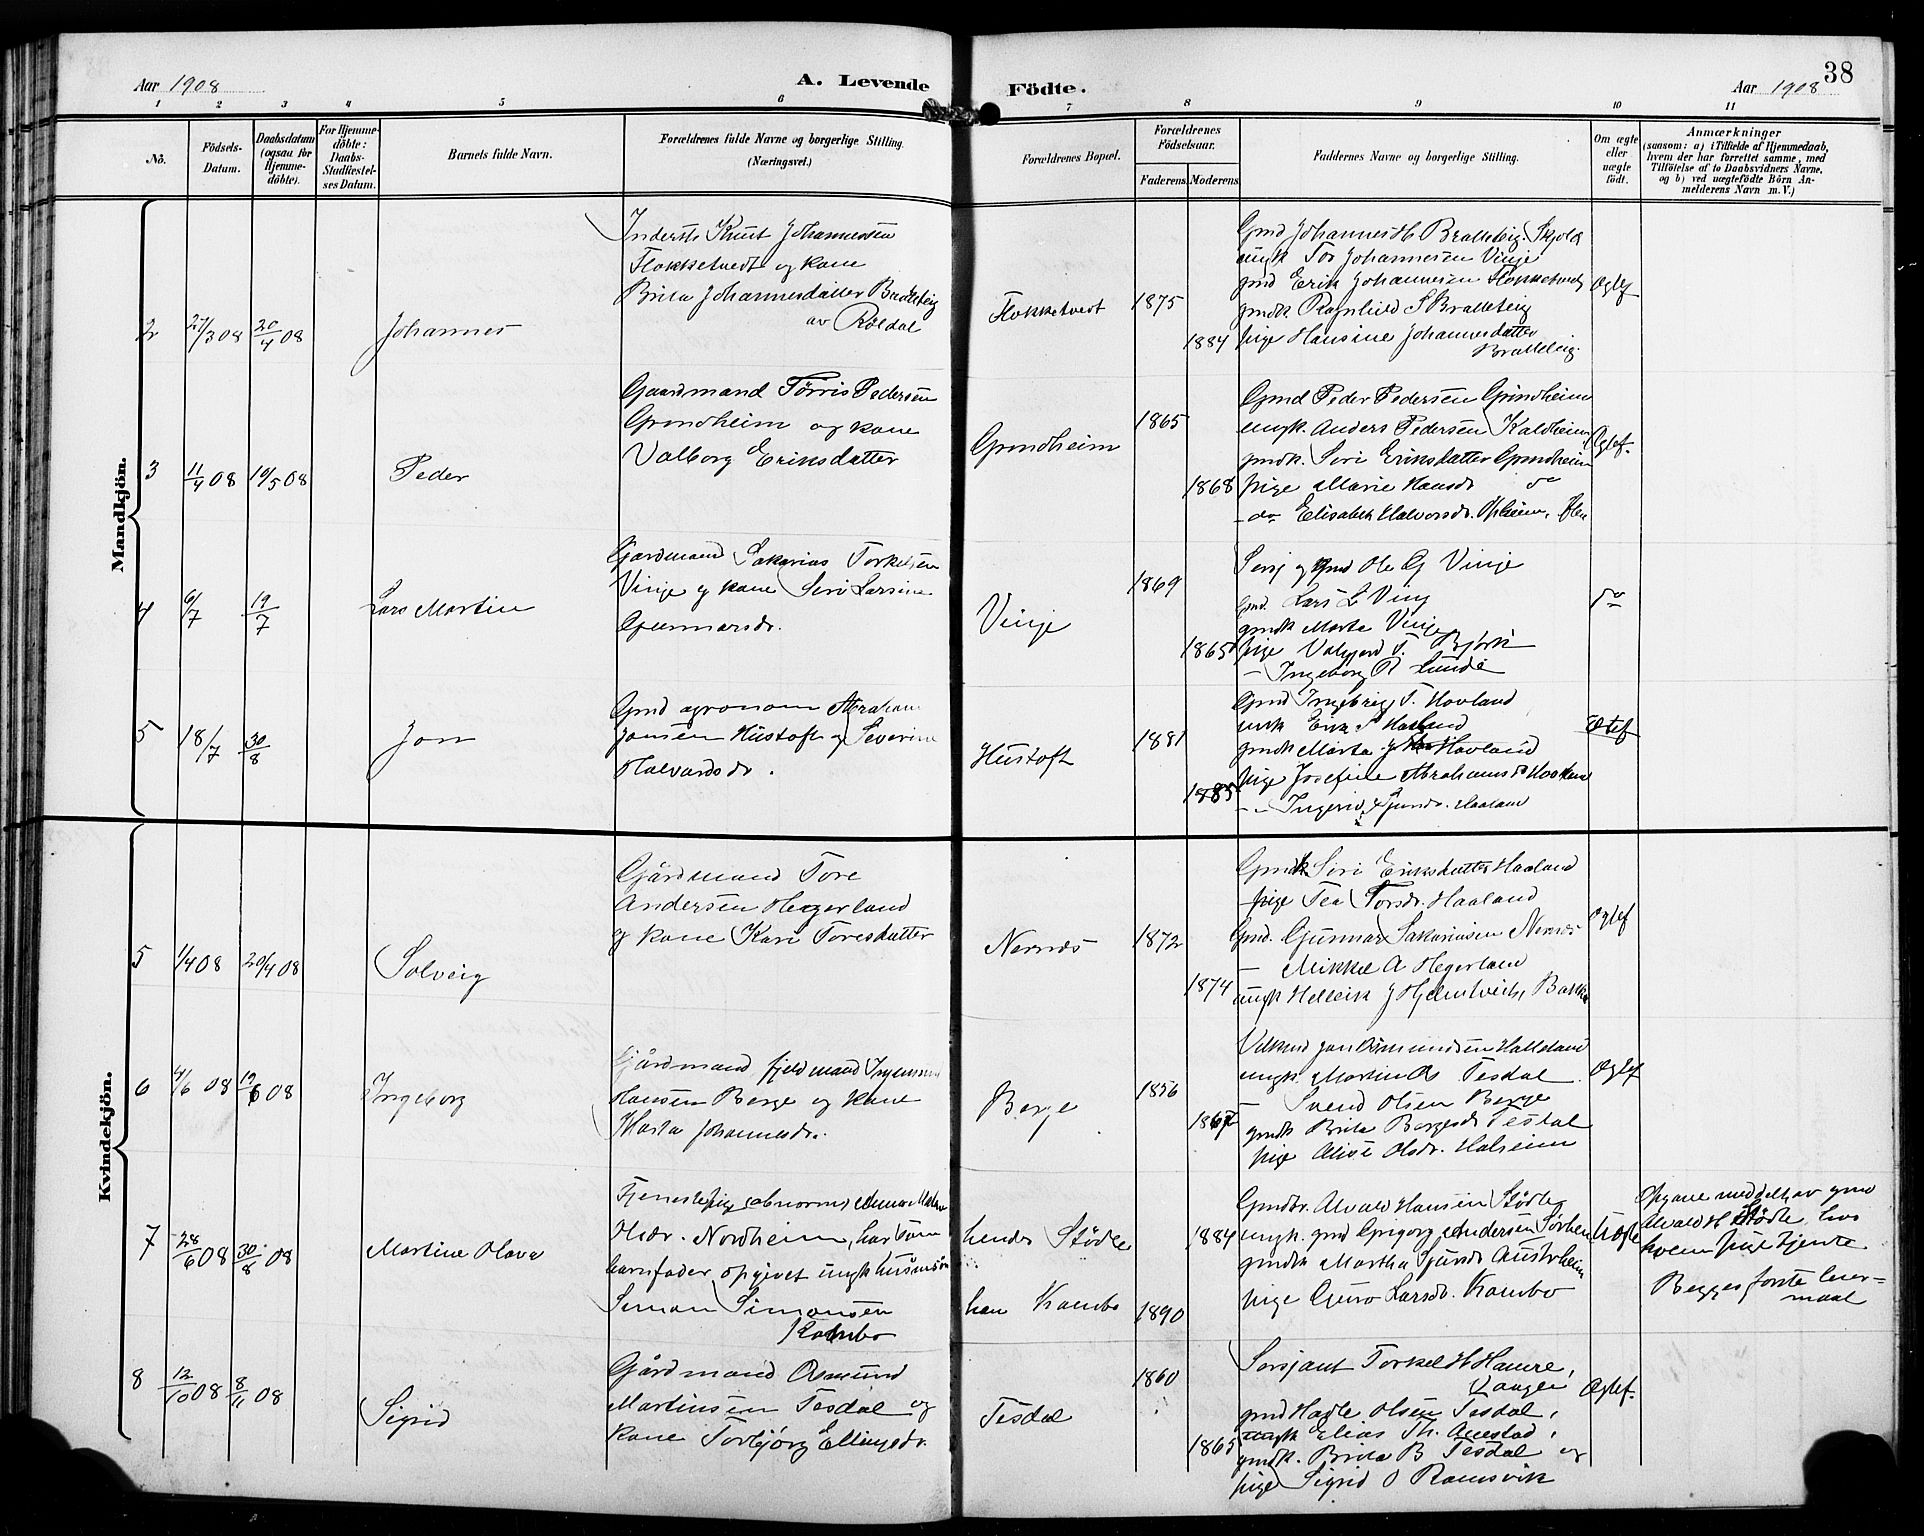 38
Aar 1908
A. Levende
Födte.
Aar 1908
1 2 3 4 5 6 7 8 9 10 11
No.
Födsels-Datum.
Daabsdatum (ogsaa for Hjemme-döbte).
For Hjemme-döbte: Daabs-Stadfæstel-ses Datum.
Barnets fulde Navn.
Forældrenes fulde Navne og borgerlige Stilling.
(Næringsvei.)
Forældrenes Bopæl.
Forældrenes Födselsaar.
Faderens. Moderens.
Faddernes Navne og borgerlige Stilling.
Om ægte eller uægte födt.
Anmærkninger
(saasom: a) i Tilfælde af Hjemmedaab,
hvem der har forrettet samme, med
Tilföielse af to Daabsvidners Navne,
og b) ved uægtefödte Börn An-
melderens Navn m. V.)
Mandkjön.
2 27/3 08 20/4 08 Johannes
Inderst Knut Johannessen
Flokketvedt og kone
Brita Johannesdatter Bratteteig
av Röldal
Flokketvedt 1875 1884
Gmd Johannes H Bratteteig, Skjold
ungk Tor Johannesen Vinje
gmd Erik Johannesen Flokketvedt
gmdk Ragnhild S Bratteteig
pige Hansine Johannesdatter
Bratteteig
Ægtef
3 11/4 08 10/5 08 Peder
Gaardmand Tørris Pedersen
Grindheim og kone
Valborg Eriksdatter
Grindheim 1865 1868
Gmd Peder Pedersen Grindheim
ungk. Anders Pedersen Kaldheim
gmdk. Siri Eriksdatter Grindheim
pige Marie Hansd. do
do Elisabeth Halvorsdr. Opheim,
Ægtef.
4 6/7 19/7 Lars Martin
Gardmand Sakarias Torkelsen
Vinje og kone Siri Larsine
Gunnarsdr.
Vinje 1869 1865
Sersj og gmd Ole G Vinje
gmd. Lars L Vinje
gmdk Marta Vinje
pige Valgjerd T. Bjørk
- Ingeborg R Lunde
do
5 18/7 30/8 Jon
Gmd agronom Abraham
Jonsen Hustoft og Severine
Halvardsdr.
Hustoft 1881 1885
Gmd Ingebrigt T. Hovland
ungk Erik S Haaland
gmdk Marta J Hovland
pige Josefine Abrahamsd
- Ingerid Gjensdr. Haaland
Ægtef
Kvindekjön.
5 1/4 08 20/4 08 Solveig
Gårdmand Tore
Andersen Hegerland
og kone Kari Toresdatter
Nernes 1872 1874
Gmdk Siri Eriksdatter Haaland
pige Tea Torsdr. Haaland
Gmd. Gunnar Sakariasen Nernes
- Mikkel A Hegerland
ungk Helleik J Hjelmtveit, Bakka
Ægtef
6 4/6 08 19/6 08 Ingeborg
Gårdmand fjeldmand Ingemund
Hansen Berge og kone
Marta Johannesdr.
Berge 1856 1867
Velkend Jon Osmundsen Halleland
ungk. Martin O Tesdal
- Svend Olsen Berge
gmdk Brita Børgesdr Tesdal
pige Alise Olsdr. Halseim
Ægtef
7 28/6 08 30/8 08 Martine Olava
Tjenestepige abnorme Anna Malene
Olsdr. Nordheim, har som
barnfader opgivet ungk husmsøn
Simon Simonsen
Kambo
hendes Stödle
han Kambo 1884 1890
Gmdbr. Alvald Hansen Stödle
ungk. gmd Grigorg Andersen Sørheim
gmdk Martha Sjursdr Austerheim
pige Guro Larsdr. Kambo
Uægte
Opgave meddelt av gmd
Alvald H Stödle, hos
hvem pige tjente
Begges første leier-
maal
8 12/10 08 8/11 08 Sigrid
Gårdmand Osmund
Martinsen Tesdal og
kone Torbjörg Ellingsdr.
Tesdal 1860 1865
Sersjant Torkel H Hamre,
gmd Hadle Olsen Tesdal,
ungk Elias Th. Amestad,
gmdk. Brita B Tesdal og
pige Sigrid O Ramsvik
Ægtef.